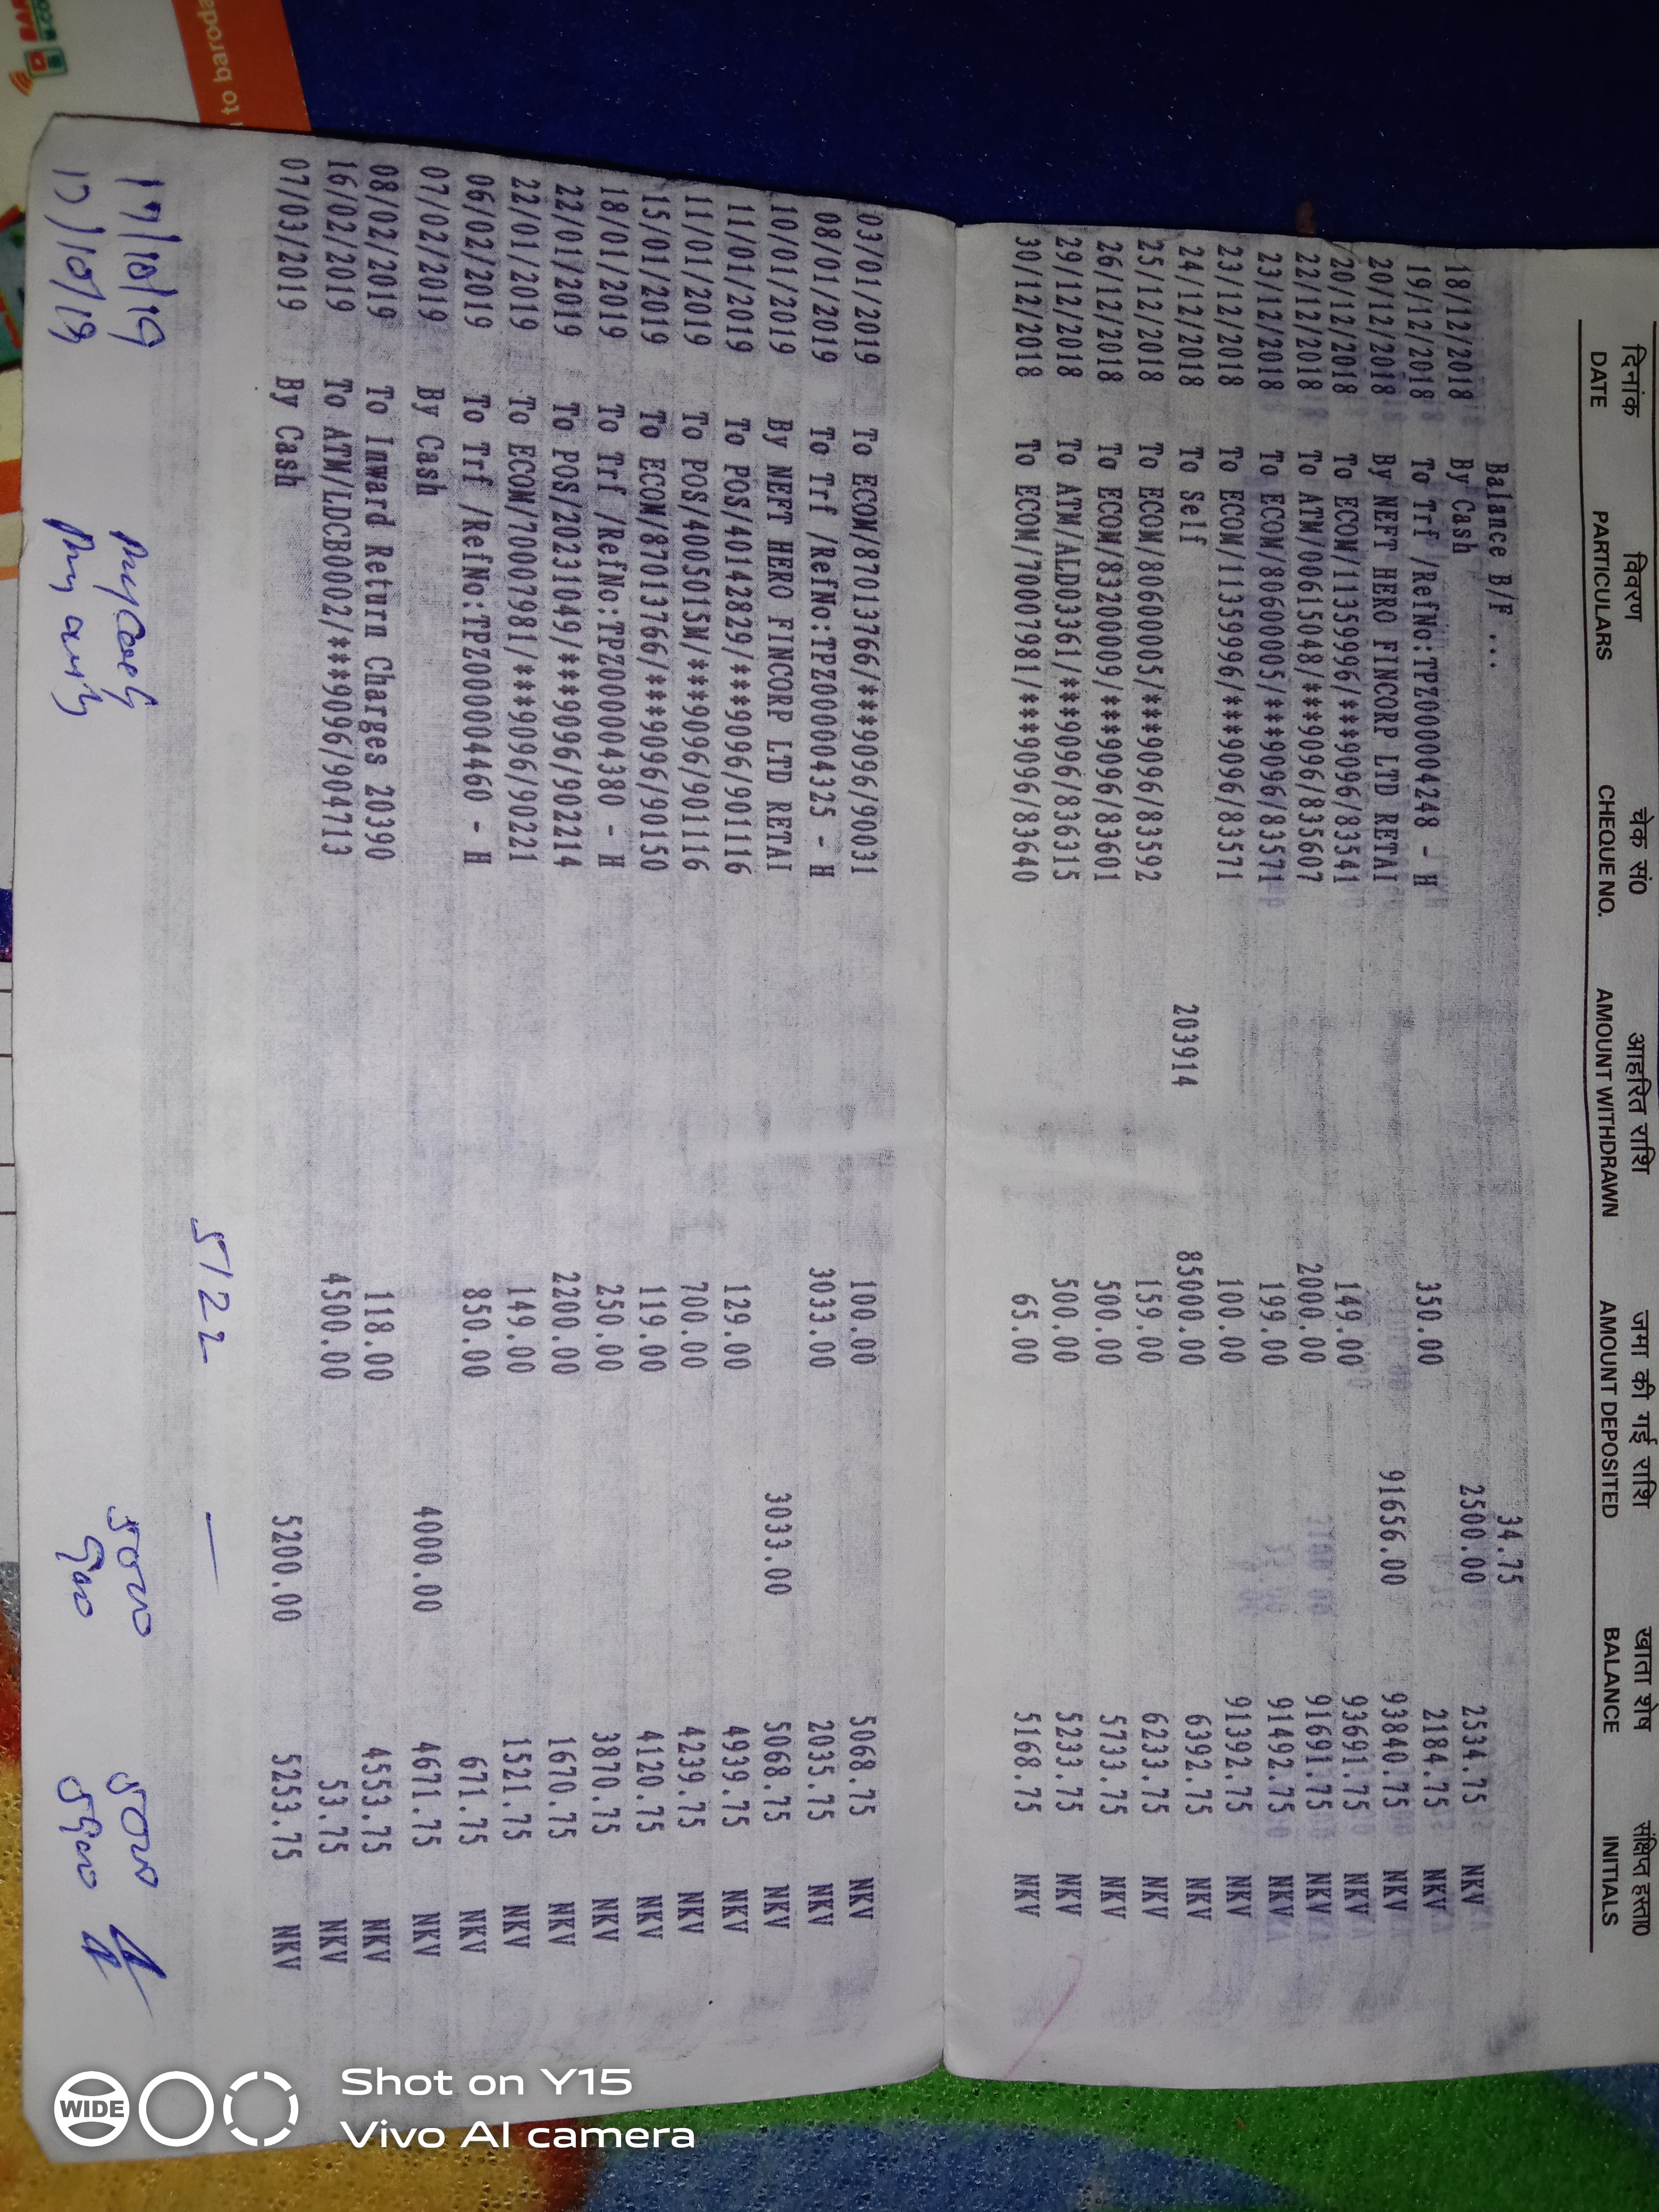 दिनांक विवरण चेक सं० आहरित राशि जमा की गई राशि खाता शेष संक्षिप्त हस्ता०
DATE PARTICULARS CHEQUE NO. AMOUNT WITHDRAWN AMOUNT DEPOSITED BALANCE INITIALS
Balance B/F ... 34.75
18/12/2018 By Cash 2500.00 2534.75 NKV
19/12/2018 To Trf /RefNo:TPZ000004248 - H 350.00 2184.75 NKV
20/12/2018 By NEFT HERO FINCORP LTD RETAI 91656.00 93840.75 NKV
20/12/2018 To ECOM/11359996/***9096/83541 149.00 93691.75 NKV
22/12/2018 To ATM/00615048/***9096/835607 2000.00 91691.75 NKV
23/12/2018 To ECOM/80600005/***9096/83571 199.00 91492.75 NKV
23/12/2018 To ECOM/11359996/***9096/83571 100.00 91392.75 NKV
24/12/2018 To Self 203914 85000.00 6392.75 NKV
25/12/2018 To ECOM/80600005/***9096/83592 159.00 6233.75 NKV
26/12/2018 To ECOM/83200009/***9096/83601 500.00 5733.75 NKV
29/12/2018 To ATM/ALD03361/***9096/836315 500.00 5233.75 NKV
30/12/2018 To ECOM/70007981/***9096/83640 65.00 5168.75 NKV
03/01/2019 To ECOM/87013766/***9096/90031 100.00 5068.75 NKV
08/01/2019 To Trf /RefNo:TPZ000004325 - H 3033.00 2035.75 NKV
10/01/2019 By NEFT HERO FINCORP LTD RETAI 3033.00 5068.75 NKV
11/01/2019 To POS/40142829/***9096/901116 129.00 4939.75 NKV
11/01/2019 To POS/4005015M/***9096/901116 700.00 4239.75 NKV
15/01/2019 To ECOM/87013766/***9096/90150 119.00 4120.75 NKV
18/01/2019 To Trf /RefNo:TPZ000004380 - H 250.00 3870.75 NKV
22/01/2019 To POS/20231049/***9096/902214 2200.00 1670.75 NKV
22/01/2019 To ECOM/70007981/***9096/90221 149.00 1521.75 NKV
06/02/2019 To Trf /RefNo:TPZ000004460 - H 850.00 671.75 NKV
07/02/2019 By Cash 4000.00 4671.75 NKV
08/02/2019 To Inward Return Charges 20390 118.00 4553.75 NKV
16/02/2019 To ATM/LDCB0002/***9096/904713 4500.00 53.75 NKV
07/03/2019 By Cash 5200.00 5253.75 NKV
5122 —
17/10/19
17/10/19
to baroda
WIDE
Shot on Y15
Vivo AI camera